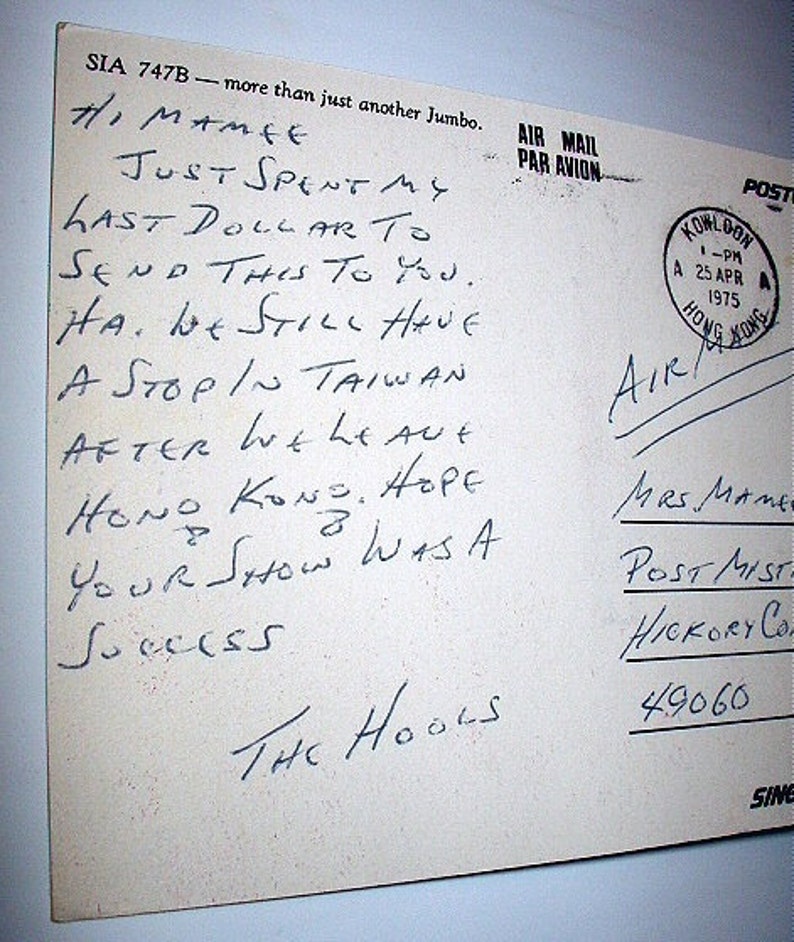 SIA 747B — more than just another Jumbo.
HI MAMEE
JUST SPENT MY
LAST DOLLAR TO
SEND THIS TO YOU.
HA. WE STILL HAVE
A STOP IN TAIWAN
AFTER WE LEAVE
HONG KONG. HOPE
YOUR SHOW WAS A
SUCCESS
THE HOOLS
AIR MAIL
PAR AVION
KOWLOON
1 -PM
A 25 APR A
1975
HONG KONG
AIR
MRS. MAMEE
POST MIST
HICKORY CO
49060